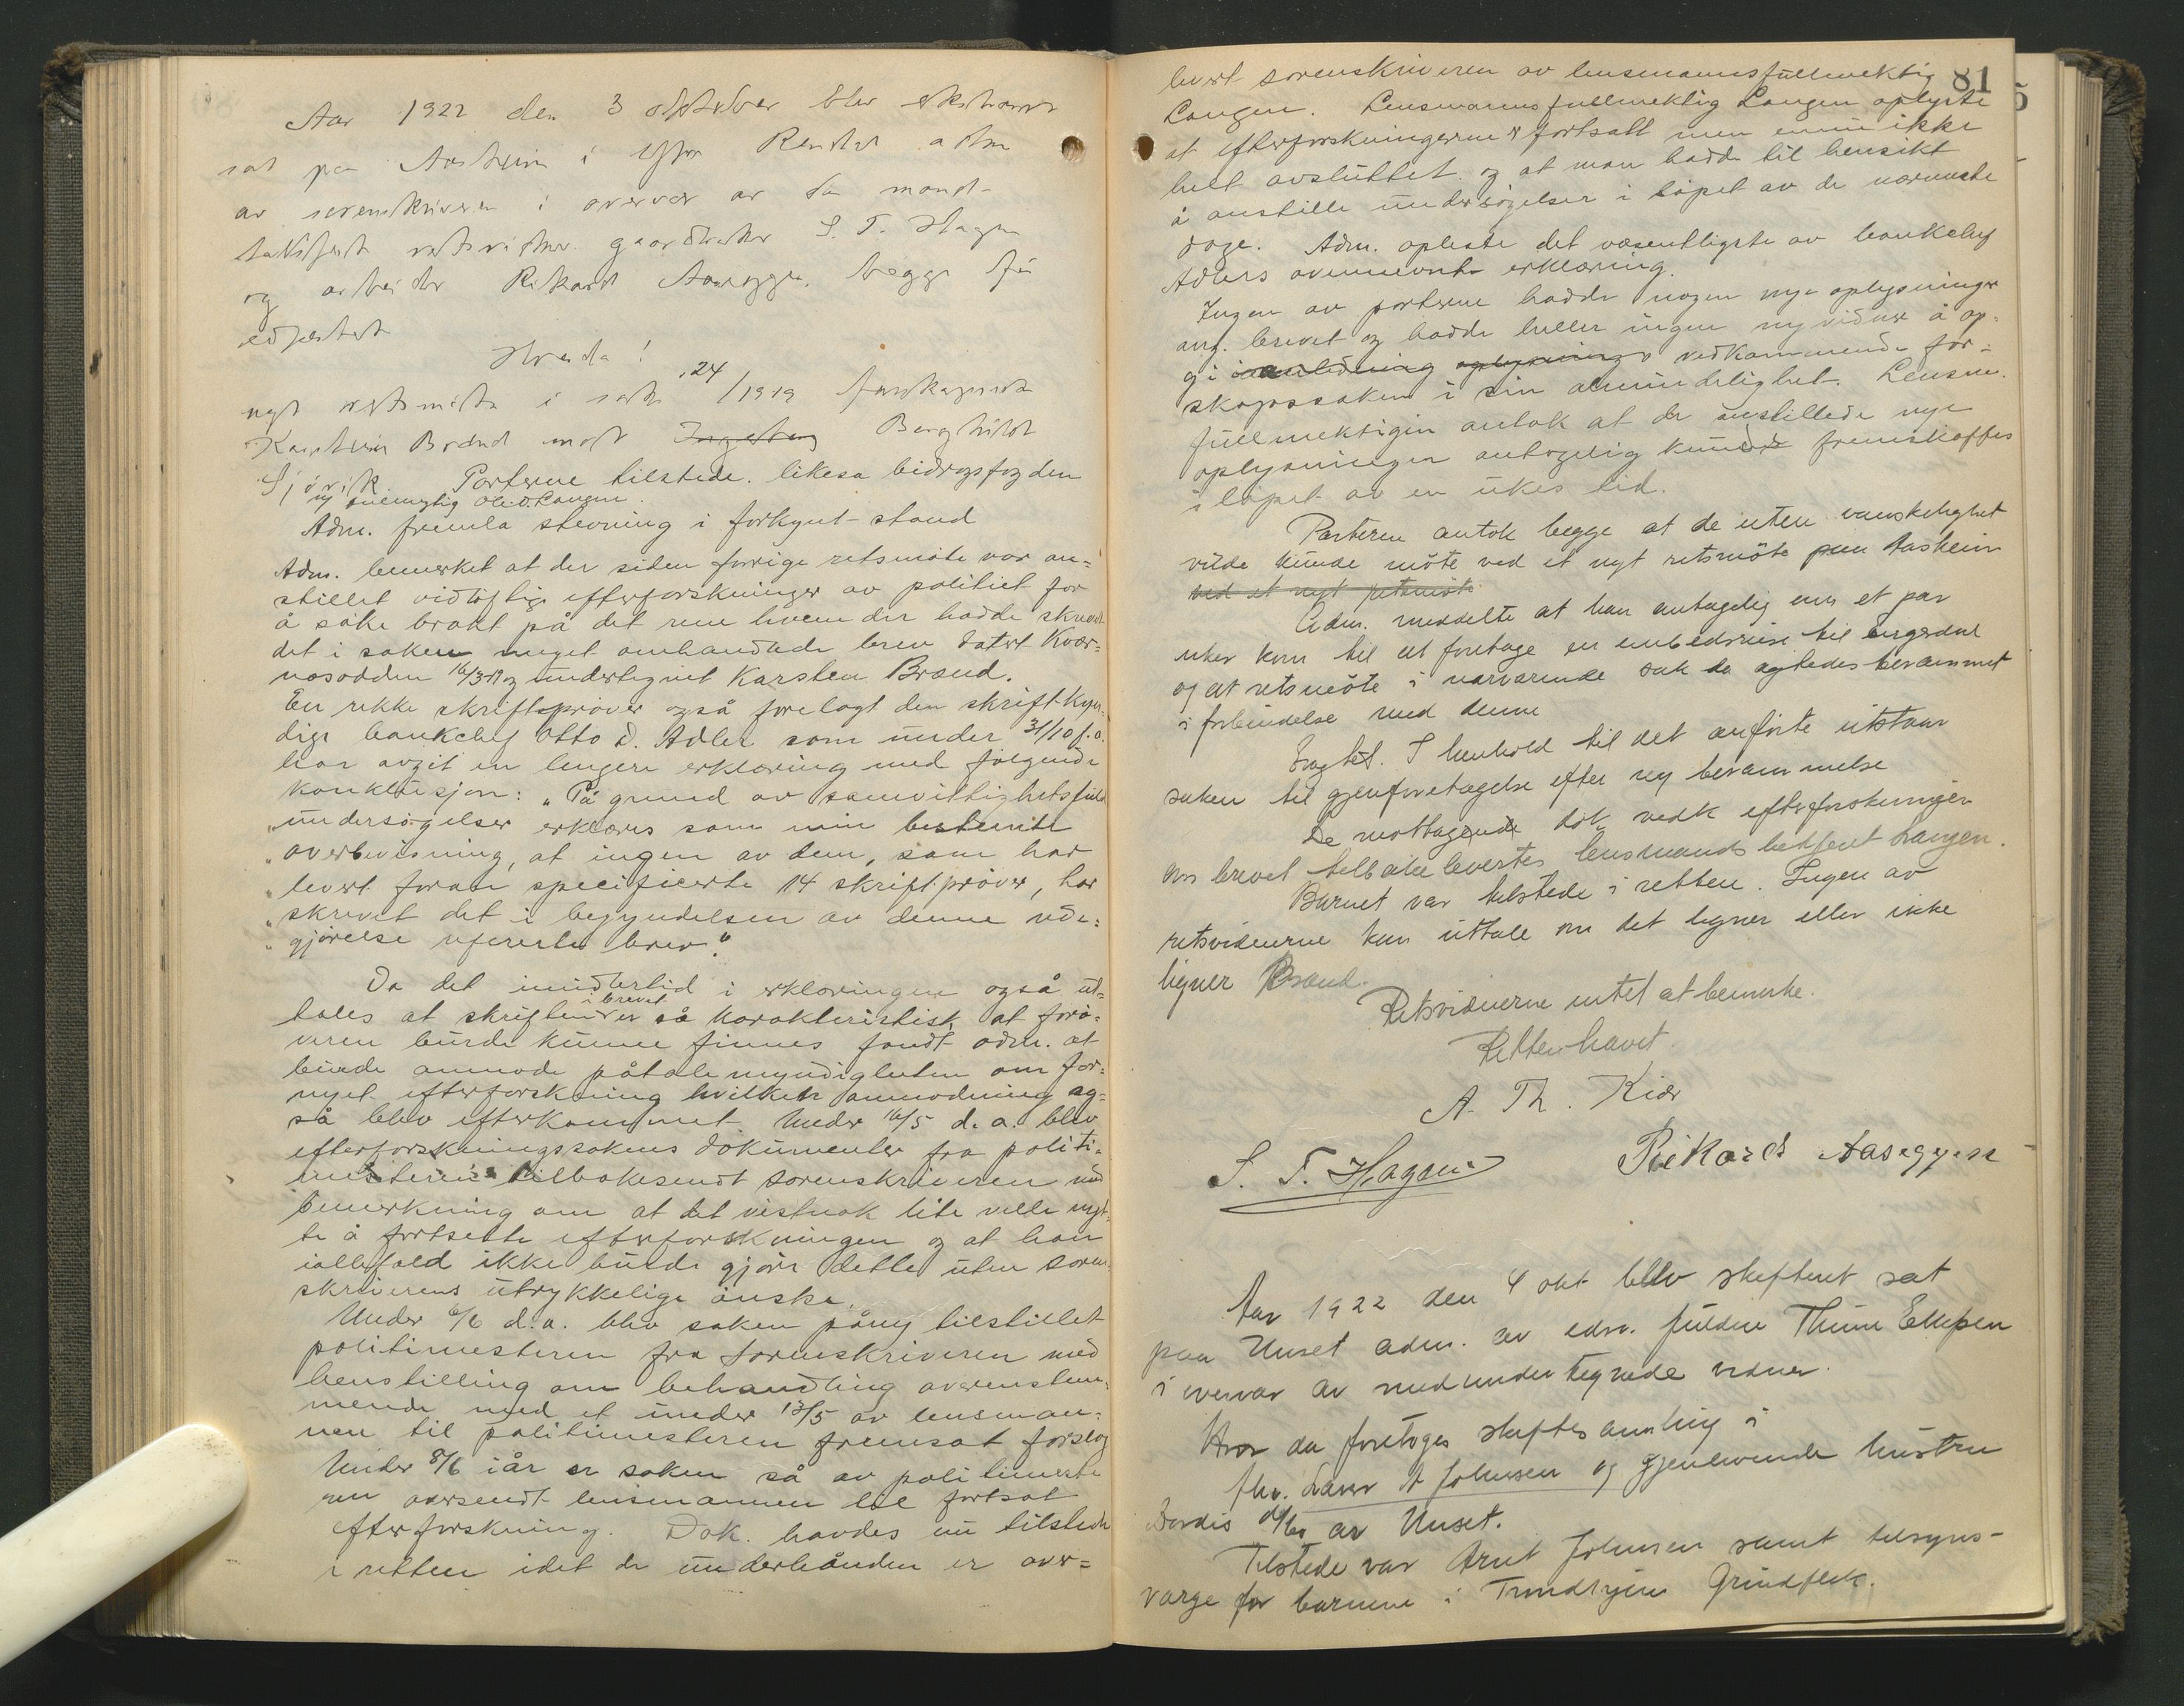 Aar 1922 den 3 oktober blev ekstraret
sat paa Aasheim i Ytre Rendal adm
av sorenskriveren i overvær av de mand-
talsførte retsvidner gaardbruker S. T. Hagen
og arbeider Rikard Aaseggen, begge før
edfæstet
Hvorda!
nyt retsmøte i sak 24/1919 farskapssak
Karsten Brænd mot Ingeborg Bergthild
Sjøvik Parterne tilstede. likesa bidragsfogden
ved fuldmegtig Ole O. Langen.
Adm. fremla stevning i forkynt stand
Adm. bemerket at der siden forrige retsmøte var an-
stillet vidløftige efterforskninger av politiet for
å søke brakt på det rene hvem der hadde skrevet
det i saken meget omhandlede brev datert Kvær-
nesodden 16/3-19 og undertegnet Karsten Brænd.
En rekke skriftsprøver også forelagt den skriftkyn-
dige bankchef Otto D. Adler som under 31/10 f.a.
har avgit en lengere erklæring med følgende
konklusjon: "På grund av samvittighetsfulde
"undersøgelser erklæres som min bestemte
"overbevisning, at ingen av dem, som har
"levert foran specificerte 14 skriftprøver, har
"skrevet det i begyndelsen av denne rede-
"gjørelse refererte brev."
Da det imidlertid i erklæringen også ut-
tales at skriften i brevet er så karakteristisk at forø-
veren burde kunne finnes fandt adm. at
burde anmode påtalemyndigheten om for-
nyet efterforskning hvilken anmodning og-
så blev efterkommet. Under 16/5 d.a. blev
efterforskningssakens dokumenter fra politi-
mesteren tilbakesendt sorenskriveren med
bemerkning om at det vistnok lite vilde nyt-
te å fortsette efterforskningen og at han
iallefald ikke burde gjøre dette uten soren-
skriverens utrykkelige ønske.
Under 6/6 d.a. blev saken påny tilstillet
politimesteren fra sorenskriveren med
henstilling om behandling overenstem-
mende med et under 13/5 av lensman-
nen til politimesteren fremsat forslag
Under 8/6 iår er saken så av politimeste-
ren oversendt lensmannen til fortsat
efterforskning. Dok. havdes nu tilstede
i retten idet de underhånden er over-
81
levert sorenskriveren av lensmannsfullmektig
Langen. Lensmannsfullmektig Langen oplyste
at efterforskningerne er fortsatt men ennu ikke
helt avsluttet. og at man hadde til hensikt
å anstille undersøgelser i løpet av de nærmeste
dage. Adm. opleste det væsentligste av bankchef
Adlers ovennevnte erklæring.
Ingen av parterne hadde nogen nye oplysninger
ang. brevet og hadde heller ingen ny vidner å op-
gi i anledning oplysninger vedkommende far-
skapssaken i sin almindelighet. Lensm.
fullmektigen antok at de anstillede nye
oplysninger antagelig kunde fremskaffes
i løpet av en ukes tid.
Parterne antok begge at de uten vanskelighet
vilde kunde møte ved et nyt retsmøte paa Aasheim
ved et nyt retsmøte
Adm. meddelte at han antagelig om et par
uker kom til at foretage en embedsreise til Engerdal
og at retsmøte i nærværende sak da agtedes berammet
i forbindelse med denne
Eragtet. I henhold til det anførte utstaar
saken til gjenforetagelse efter ny berammelse
De mottagende dok vedk efterforskningen
om brevet tilbakelevertes lensmands betjent Langen.
Barnet var tilstede i retten. Ingen av
retsvidnerne kan uttale om det ligner eller ikke
ligner Brænd.
Retsvidnerne intet at bemerke.
Retten hævet.
A. Th. Kiær
S. T. Hagen Rikard Aaseggen
Aar 1922 den 4 okt blev skifteret sat
paa Unset adm. av edsv. fuldm Thune Ellefsen
i overvær av medundertegnede vidner.
Hvor da foretoges skiftesamling i
Lars A Johnsen og gjenlevende hustru
av Unset.
Tilstede var Arnt Johnsen samt tilsyns-
verge for barnene i Trondhjem Grindflek.